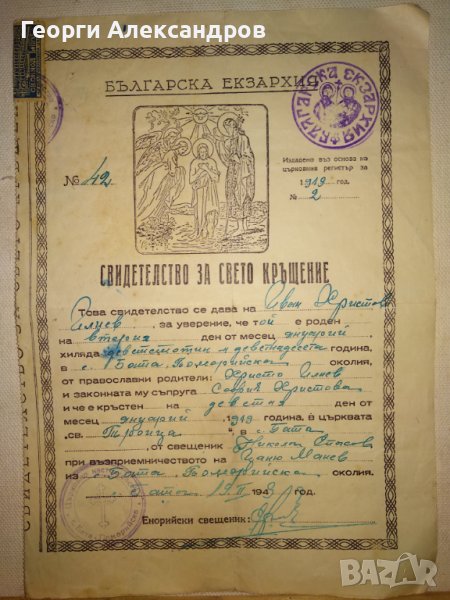 Георги Александров
БЪЛГАРСКА ЕКЗАРХИЯ
БЪЛГАРСКА ЕКЗАРХИЯ
Издадено въз основа на
църковния регистър за
1919 год.
№ 2
№ 42
СВИДЕТЕЛСТВО ЗА СВЕТО КРЪЩЕНИЕ
Това свидетелство се дава на Иван Христов
Илиев за уверение, че той е роден
на втория ден от месец януарий
хиляда деветстотин и деветнадесета година,
в с. Бата, Поморийска околия.
от православни родители: Христо Илиев
и законната му съпруга София Христова
и че е кръстен на деветия ден от
месец януарий 1919 година, в църквата
„св. Троица" в с. Бата
от свещеник Никола Спасов
при възприемничеството на Цаню Манев
из с. Бата, Поморийска околия.
с. Бата 19 II 194 год.
Енорийски свещеник:
СВИДЕТЕЛСТВО ЗА СВЕТО КРЪЩЕ
BAZAR.bg